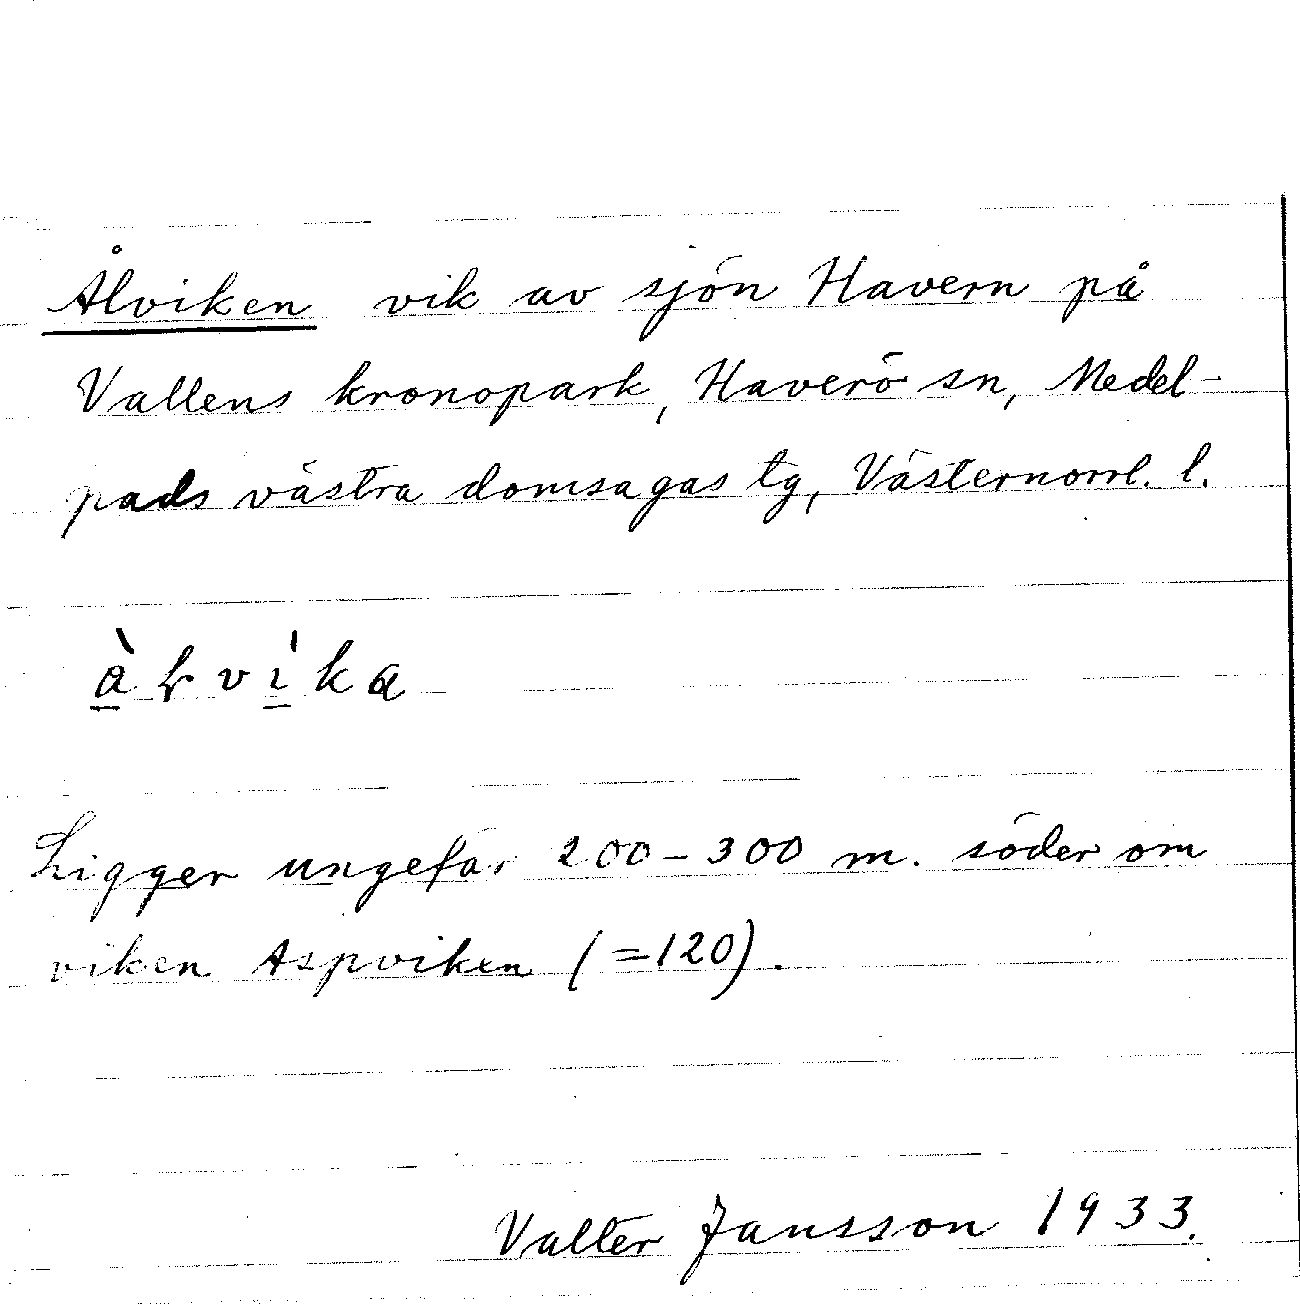 Ålviken vik av sjön Havern på
Vallens kronopark, Haverö sn, Medel-
pads västra domsagas tg, Västernorrl. l.
Ligger ungefär 200-300 m. söder om
viken Aspviken (=120).
Valter Jansson 1933.